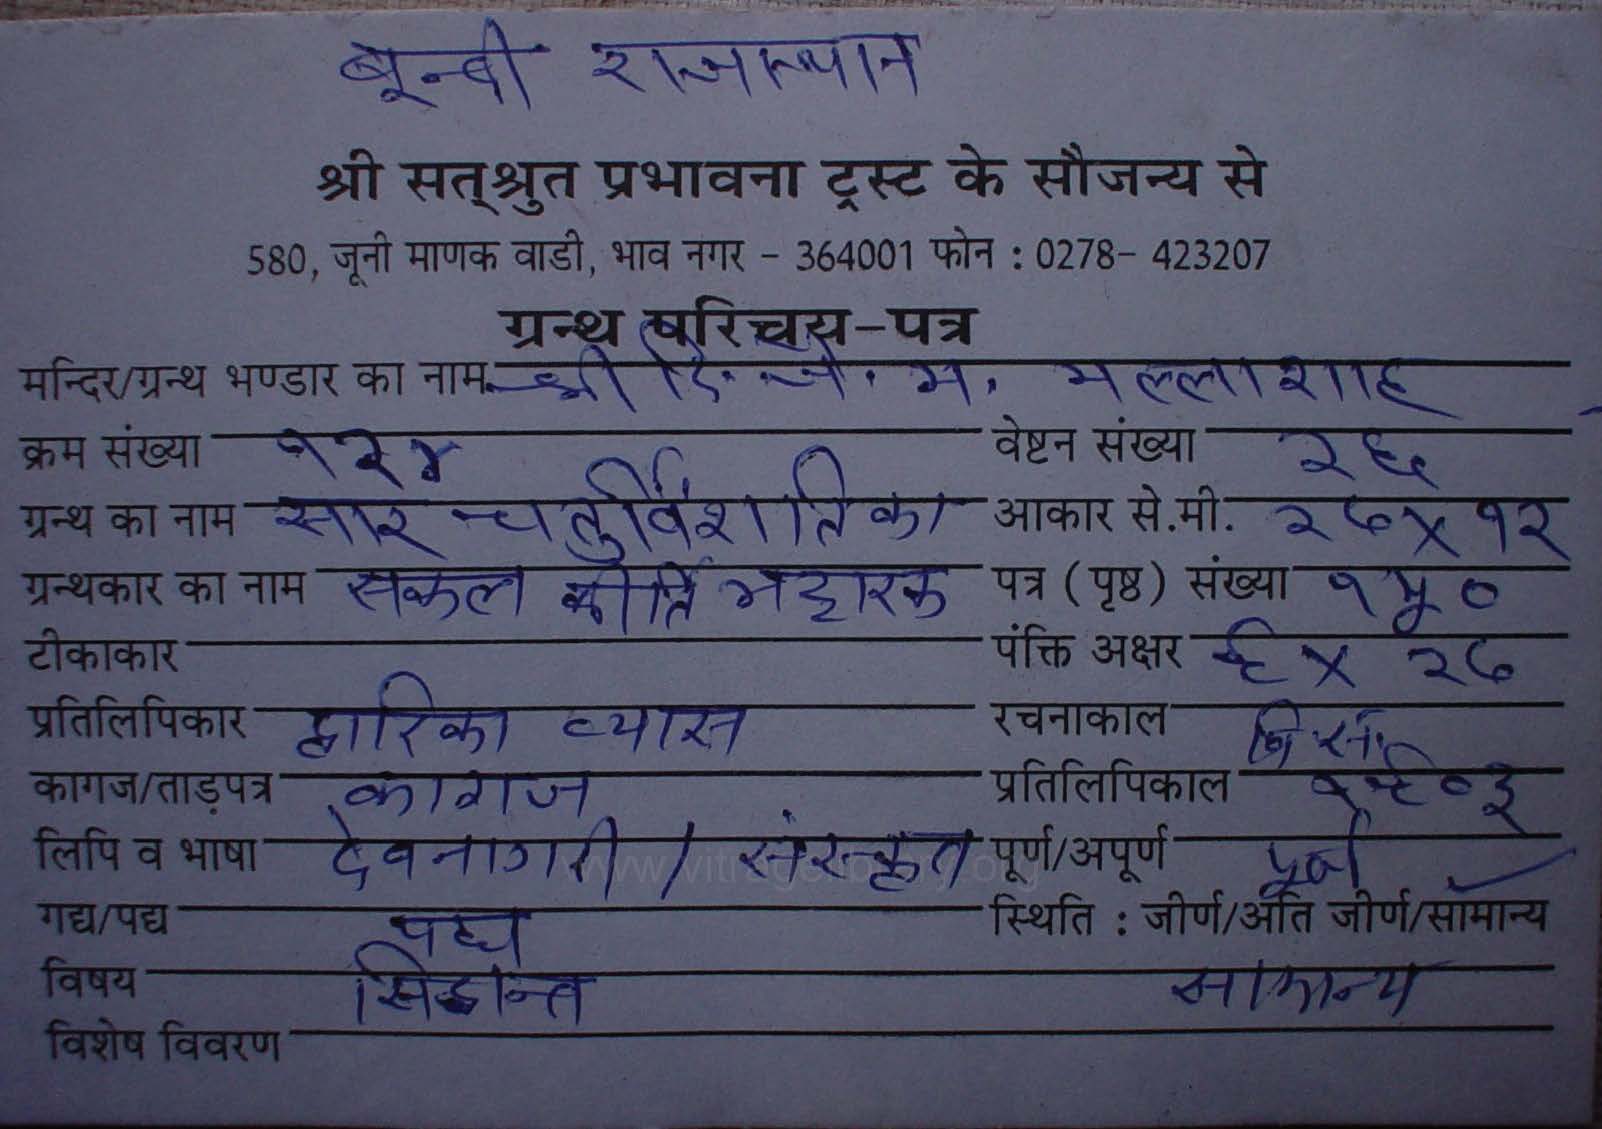 बून्दी राजस्थान
श्री सत्श्रुत प्रभावना ट्रस्ट के सौजन्य से
580, जूनी माणक वाडी, भाव नगर - 364001 फोन : 0278- 423207
ग्रन्थ परिचय-पत्र
मन्दिर/ग्रन्थ भण्डार का नाम श्री दि. जै. म. मल्लाशाह
क्रम संख्या १२४ वेष्टन संख्या २६
ग्रन्थ का नाम सार चतुर्विंशतिका आकार से.मी. २७x१२
ग्रन्थकार का नाम सकल कीर्ति भट्टारक पत्र (पृष्ठ) संख्या १५०
टीकाकार पंक्ति अक्षर ९x २७
प्रतिलिपिकार द्वारिका व्यास रचनाकाल
वि.सं.
कागज/ताड़पत्र कागज प्रतिलिपिकाल १९०३
लिपि व भाषा देवनागरी / संस्कृत पूर्ण/अपूर्ण पूर्ण
गद्य/पद्य पद्य स्थिति : जीर्ण/अति जीर्ण/सामान्य
विषय सिद्धान्त सामान्य
विशेष विवरण